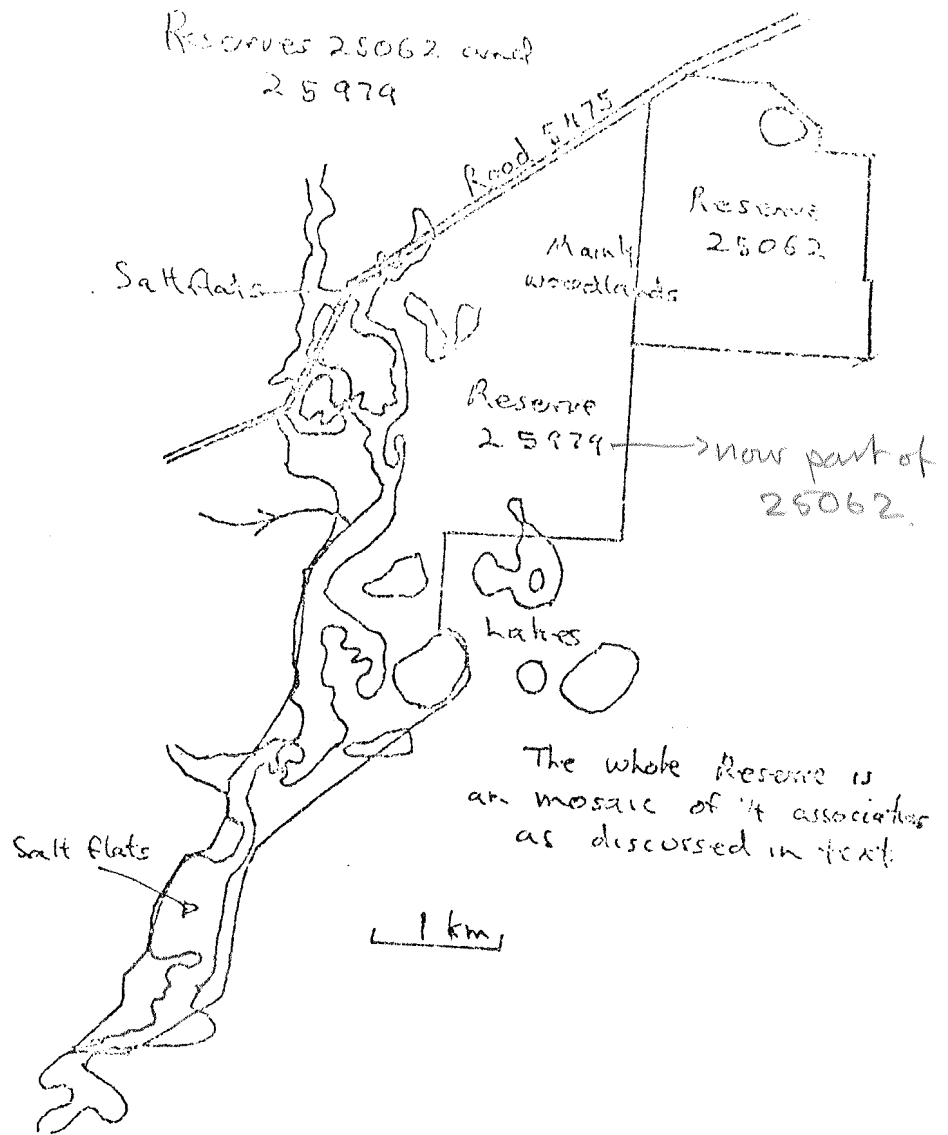 Reserves 25062 and
25979
Road 5475
Reserve
25062
Mainly
woodlands
Salt flats
Reserve
25979
now part of
25062.
Lakes
The whole Reserve is
an mosaic of 4 associations
as discussed in text
Salt flats
1 km